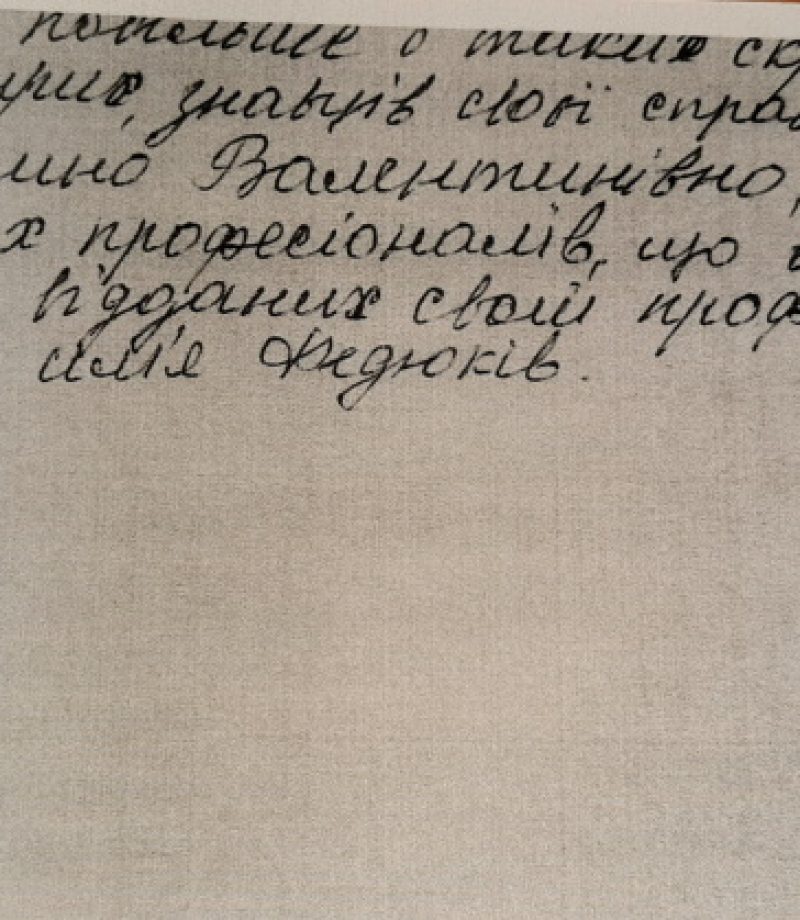 побільше б таких ск
учих, знавців своєї справ
ино Валентинівно,
х професіоналів, що
відданих своїй проф
сім'я Федюків.